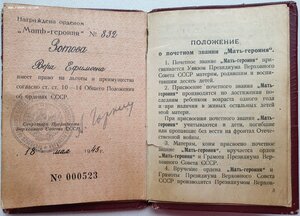 Награждена орденом
„Мать-героиня“ № 832
Зотова
Вера Ефимовна
имеет право на льготы и преимущества
согласно ст. ст. 10—14 Общего Положения
об орденах СССР.
Секретарь Президиума
Верховного Совета СССР
Горкин
18 мая 1945 г.
№ 000523
ПОЛОЖЕНИЕ
о почетном звании „Мать-героиня“.
1. Почетное звание „Мать-героиня“ присваивается
Указом Президиума Верховного
Совета СССР матерям, родившим и воспитавшим
десять детей.
2. Присвоение почетного звания „Мать-героиня“
производится по достижении последним
ребенком возраста одного года
и при наличии в живых остальных детей
этой матери.
При присвоении почетного звания „Мать-героиня“
учитываются и дети, погибшие
или пропавшие без вести на фронтах Отечественной
войны.
3. Матерям, коим присвоено почетное
звание „Мать-героиня“, вручается орден
„Мать-героиня“ и Грамота Президиума Верховного
Совета СССР.
4. Вручение ордена „Мать-героиня“ и
Грамоты Президиума Верховного Совета
СССР производится Президиумом Верхов-